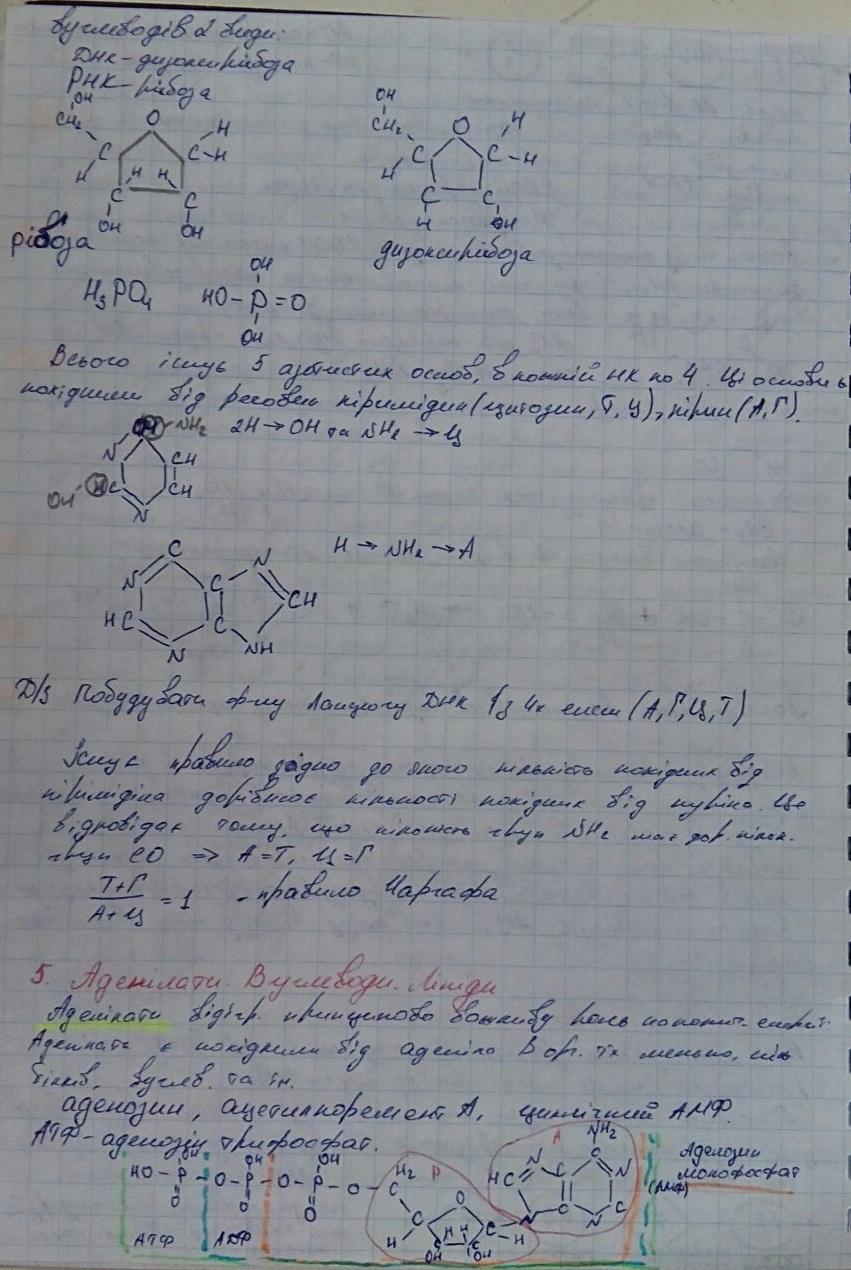 вуглеводів 2 види:
ДНК - дизоксирібоза
РНК - рібоза
OH
CH₂
O
H
C
C-H
H
H
H
C
C
OH
OH
рібоза
OH
CH₂
O
H
C
C-H
H
C
C
H
OH
дизоксирібоза
H₃PO₄
OH
HO-P=O
OH
Всього існує 5 азотистих основ, в кожній НК по 4. Ці основи є
похідними від речовен пірімідин (цитозин, Т, Ц), пірин (А, Г).
NH₂ 2H → OH та NH₂ → Ц
N
CH
OH
HC
CH
N
H → NH₂ → A
C
N
N
C
CH
HC
C
N
NH
Д/з Побудувати ф-лу ланцюгу ДНК із 4х елем (А, Г, Ц, Т)
Існує правило згідно до якого кількість похідних від
пірімідіна дорівнює кількості похідних від пуріна. Це
відповідає тому, що кількість груп NH₂ має дор. кільк.
груп CO ⇒ А=Т, Ц=Г
Т+Г
А+Ц
= 1 - правило Чаргафа
5. Аденілати. Вуглеводи. Ліпіди
Аденілати відігр. принципово важливу роль
Аденілати є похідними від аденіла В орг. їх меньше, ніж
білків, вуглев. та ін.
аденозин, А, циклічний АМФ.
АТФ - аденозін трифосфат.
HO-P-O-P-O-P-O-C
OH
OH
OH
O
O
O
H₂
Р
C
O
H
H H
C
C
C-H
OH
OH
А
NH₂
N
C
C
HC
N
N
C
C
N
Аденозин
монофосфат
(АМФ)
АТФ
АДФ